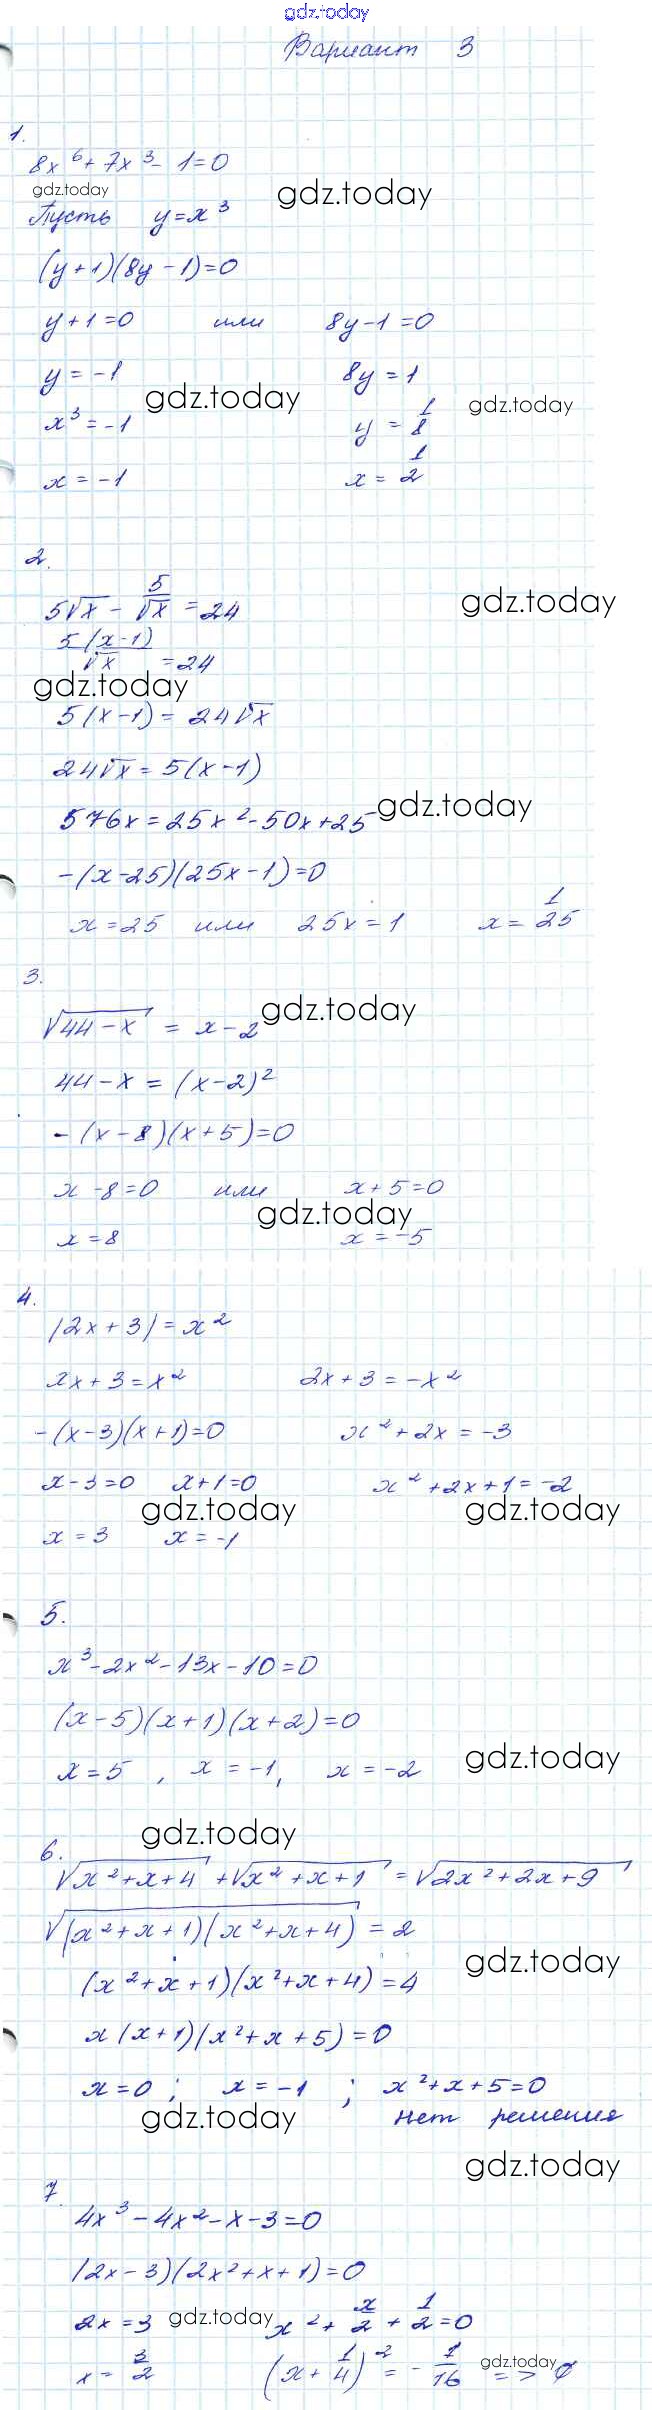 gdz.today
Вариант 3
1.
8x⁶ + 7x³ - 1 = 0
gdz.today
gdz.today
Пусть y = x³
(y + 1)(8y - 1) = 0
y + 1 = 0 или 8y - 1 = 0
y = -1 8y = 1
gdz.today
gdz.today
x³ = -1 y = 1/8
x = -1 x = 1/2
2.
5√x - 5/√x = 24
gdz.today
5(x-1)/√x = 24
gdz.today
5(x-1) = 24√x
24√x = 5(x-1)
576x = 25x² - 50x + 25
gdz.today
-(x-25)(25x-1) = 0
x = 25 или 25x = 1 x = 1/25
3.
√(44-x) = x - 2
gdz.today
44 - x = (x-2)²
-(x-8)(x+5) = 0
x - 8 = 0 или x + 5 = 0
gdz.today
x = 8 x = -5
4.
|2x + 3| = x²
2x + 3 = x² 2x + 3 = -x²
-(x-3)(x+1) = 0 x² + 2x = -3
x - 3 = 0 x + 1 = 0 x² + 2x + 1 = -2
gdz.today gdz.today
x = 3 x = -1
5.
x³ - 2x² - 13x - 10 = 0
(x-5)(x+1)(x+2) = 0
x = 5, x = -1, x = -2
gdz.today
gdz.today
6.
√(x²+x+4) + √(x²+x+1) = √(2x²+2x+9)
√((x²+x+1)(x²+x+4)) = 2
gdz.today
(x²+x+1)(x²+x+4) = 4
x(x+1)(x²+x+5) = 0
x = 0; x = -1; x²+x+5 = 0
gdz.today
нет решения
gdz.today
7.
4x³ - 4x² - x - 3 = 0
(2x-3)(2x²+x+1) = 0
2x = 3 x² + x/2 + 1/2 = 0
gdz.today
x = 3/2 (x + 1/4)² = -1/16 => ∅
gdz.today